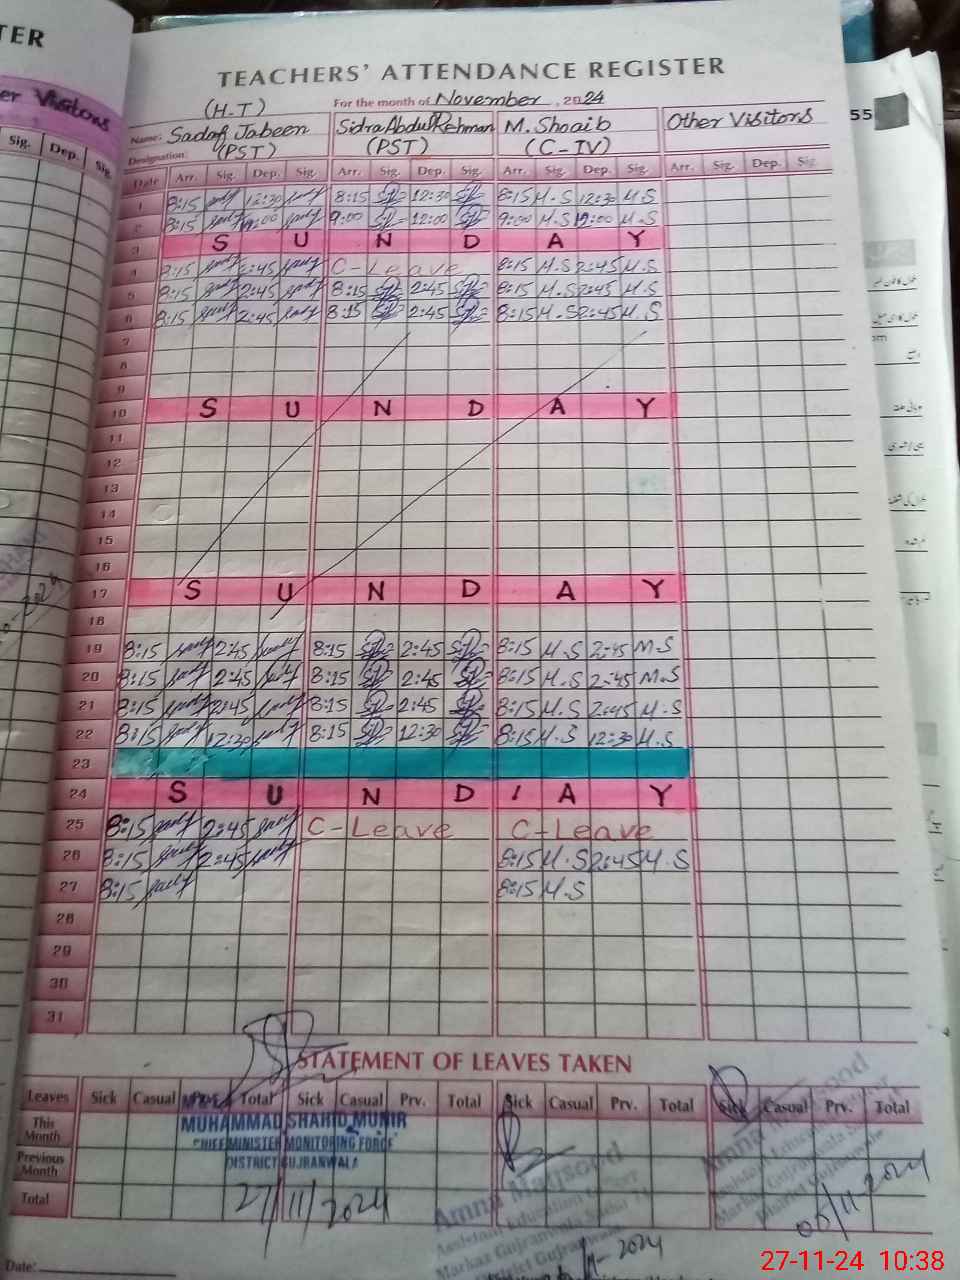 TER
er Visitors
Sig. Dep. Sig
TEACHERS' ATTENDANCE REGISTER
(H-T) For the month of November, 2024
Name: Sadaf Jabeen Sidra Abdul Rehman M. Shoaib Other Visitors
Designation: (PST) (PST) (C-IV)
Date Arr. Sig. Dep. Sig. Arr. Sig. Dep. Sig. Arr. Sig. Dep. Sig. Arr. Sig. Dep. Sig
1 8:15 12:30 8:15 12:30 8:15 M.S 12:30 M.S
2 8:15 12:00 9:00 12:00 9:00 M.S 12:00 M.S
3 S U N D A Y
4 8:15 2:45 C-Leave 8:15 M.S 2:45 M.S
5 8:15 2:45 8:15 2:45 8:15 M.S 2:45 M.S
6 8:15 2:45 8:15 2:45 8:15 M.S 2:45 M.S
7
8
9
10 S U N D A Y
11
12
13
14
15
16
17 S U N D A Y
18
19 8:15 2:45 8:15 2:45 8:15 M.S 2:45 M.S
20 8:15 2:45 8:15 2:45 8:15 M.S 2:45 M.S
21 8:15 2:45 8:15 2:45 8:15 M.S 2:45 M.S
22 8:15 12:30 8:15 12:30 8:15 M.S 12:30 M.S
23
24 S U N D A Y
25 8:15 2:45 C-Leave C-Leave
26 8:15 2:45 8:15 M.S 2:45 M.S
27 8:15 8:15 M.S
28
29
30
31
STATEMENT OF LEAVES TAKEN
Leaves Sick Casual Prv. Total Sick Casual Prv. Total Sick Casual Prv. Total Sick Casual Prv. Total
This Month
Previous Month
Total
MUHAMMAD SHAHID MUNIR
CHIEF MINISTER MONITORING FORCE
DISTRICT GUJRANWALA
27/11/2024
Amna Maqsood
Assistant Education Officer
Markaz Gujranwala Saddar
District Gujranwala
11-2024
Amna Maqsood
Assistant Education Officer
Markaz Gujranwala Saddar
District Gujranwala
05/11-2024
Date:
55
27-11-24 10:38